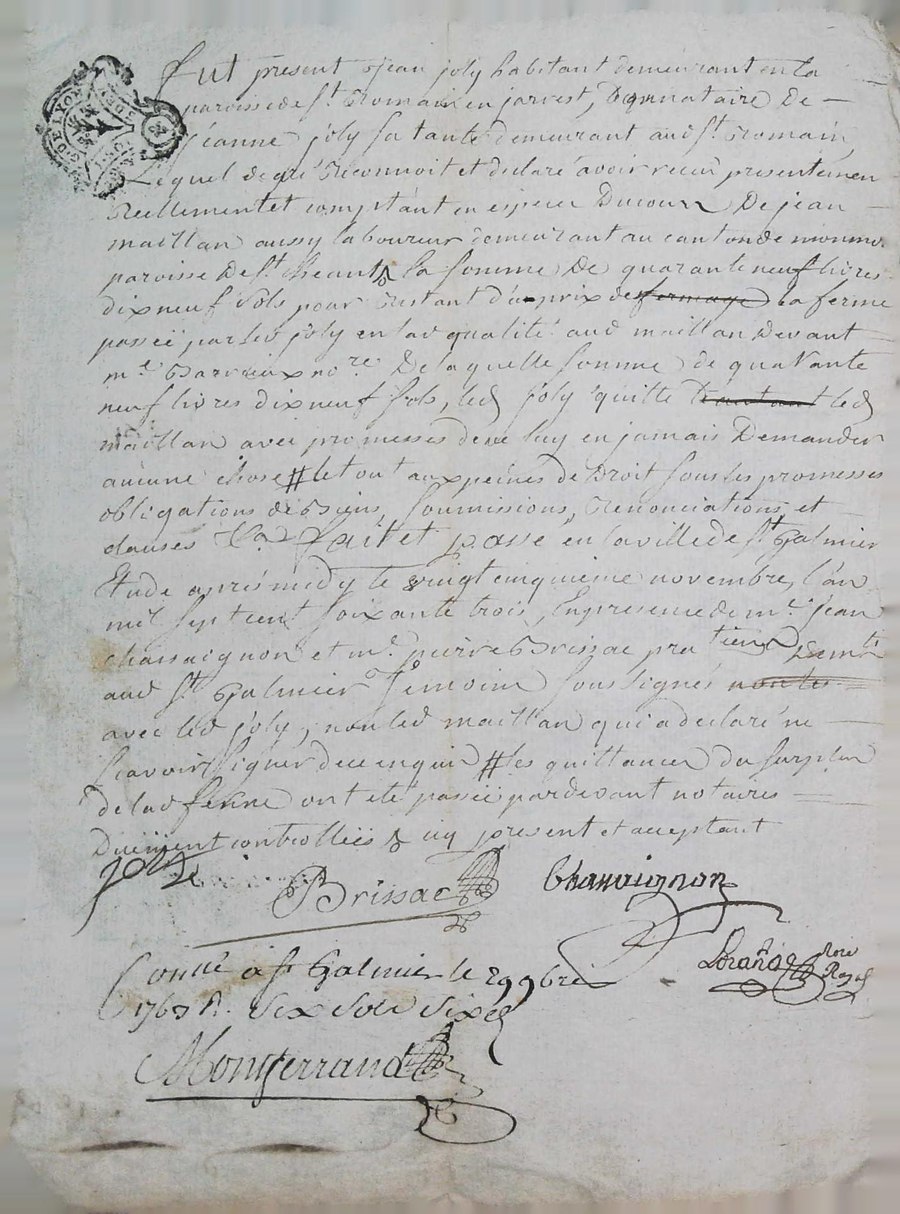 fut present Jean joly habitant demeurant en la
paroisse de St Romain en jarrest, donnataire De
jeanne joly sa tante demeurant aud St Romain,
Lequel de gré Reconnoit et declaré avoir recu presentemen
Reellement et comptant en especes Ducours De jean
maillan aussy laboureur demeurant au canton de
paroisse De St la somme De quarante neuf livres
dix neuf sols pour Restant du prix de fermage la ferme
passée par led joly en lad qualité aud maillan Devant
me nore De laquelle somme de quarante
neuf livres dix neuf sols, led joly quitte tantant led
maillan avec promesses de ne luy en jamais Demander
aucune chose # le tout aux peines de Droit sous les promesses
obligations de Biens, soumissions, Renonciations, et
clauses fait et passé en la ville de St Galmier
Etude apres midy le vingt cinquieme novembre, l'an
mil sept cent soixante trois, En presence de me jean
chassaignon et me pierre Brissac praticiens Demts
aud St Galmier Temoins sous signés non les
avec led joly, non led maillan qui a declaré ne
scavoir signer de ce enquis # les quittances du surplus
de lad ferme ont eté passée pardevant notaires
Duëment controllées & icy present et acceptant
joly
Brissac Chassaignon
Nore
Royal
Con.llé à St Galmier le 29 9bre
1763 R. Six Sols Six d
Montferrand